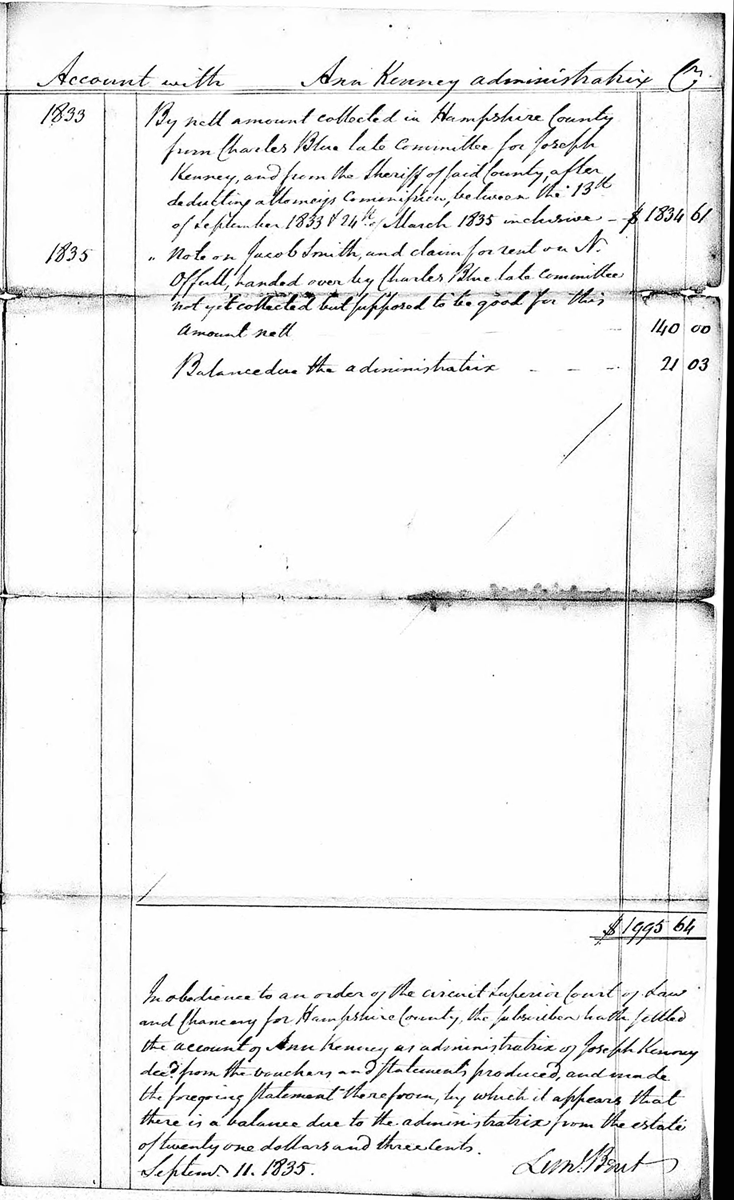 Account with Ann Kenney administratrix Cr.
1833 By nett amount collected in Hampshire County
from Charles Blue late Committee for Joseph
Kenney, and from the Sheriff of said County, after
deducting attorneys Commission, between the 13th
of September 1833 & 24th of March 1835 inclusive — $ 1834 61
1835 " Note on Jacob Smith, and claim for rent on N.
Offutt, handed over by Charles Blue late Committee
not yet collected but supposed to be good for this
amount nett 140 00
Balance due the administratrix - - - 21 03
$ 1995 64
In obedience to an order of the circuit Superior Court of Law
and Chancery for Hampshire County, the subscriber hath settled
the account of Ann Kenney as administratrix of Joseph Kenney
decd. from the vouchers and statements produced, and made
the foregoing statement therefrom, by which it appears that
there is a balance due to the administratrix from the estate
of twenty one dollars and three cents.
Septemr. 11. 1835. Bent